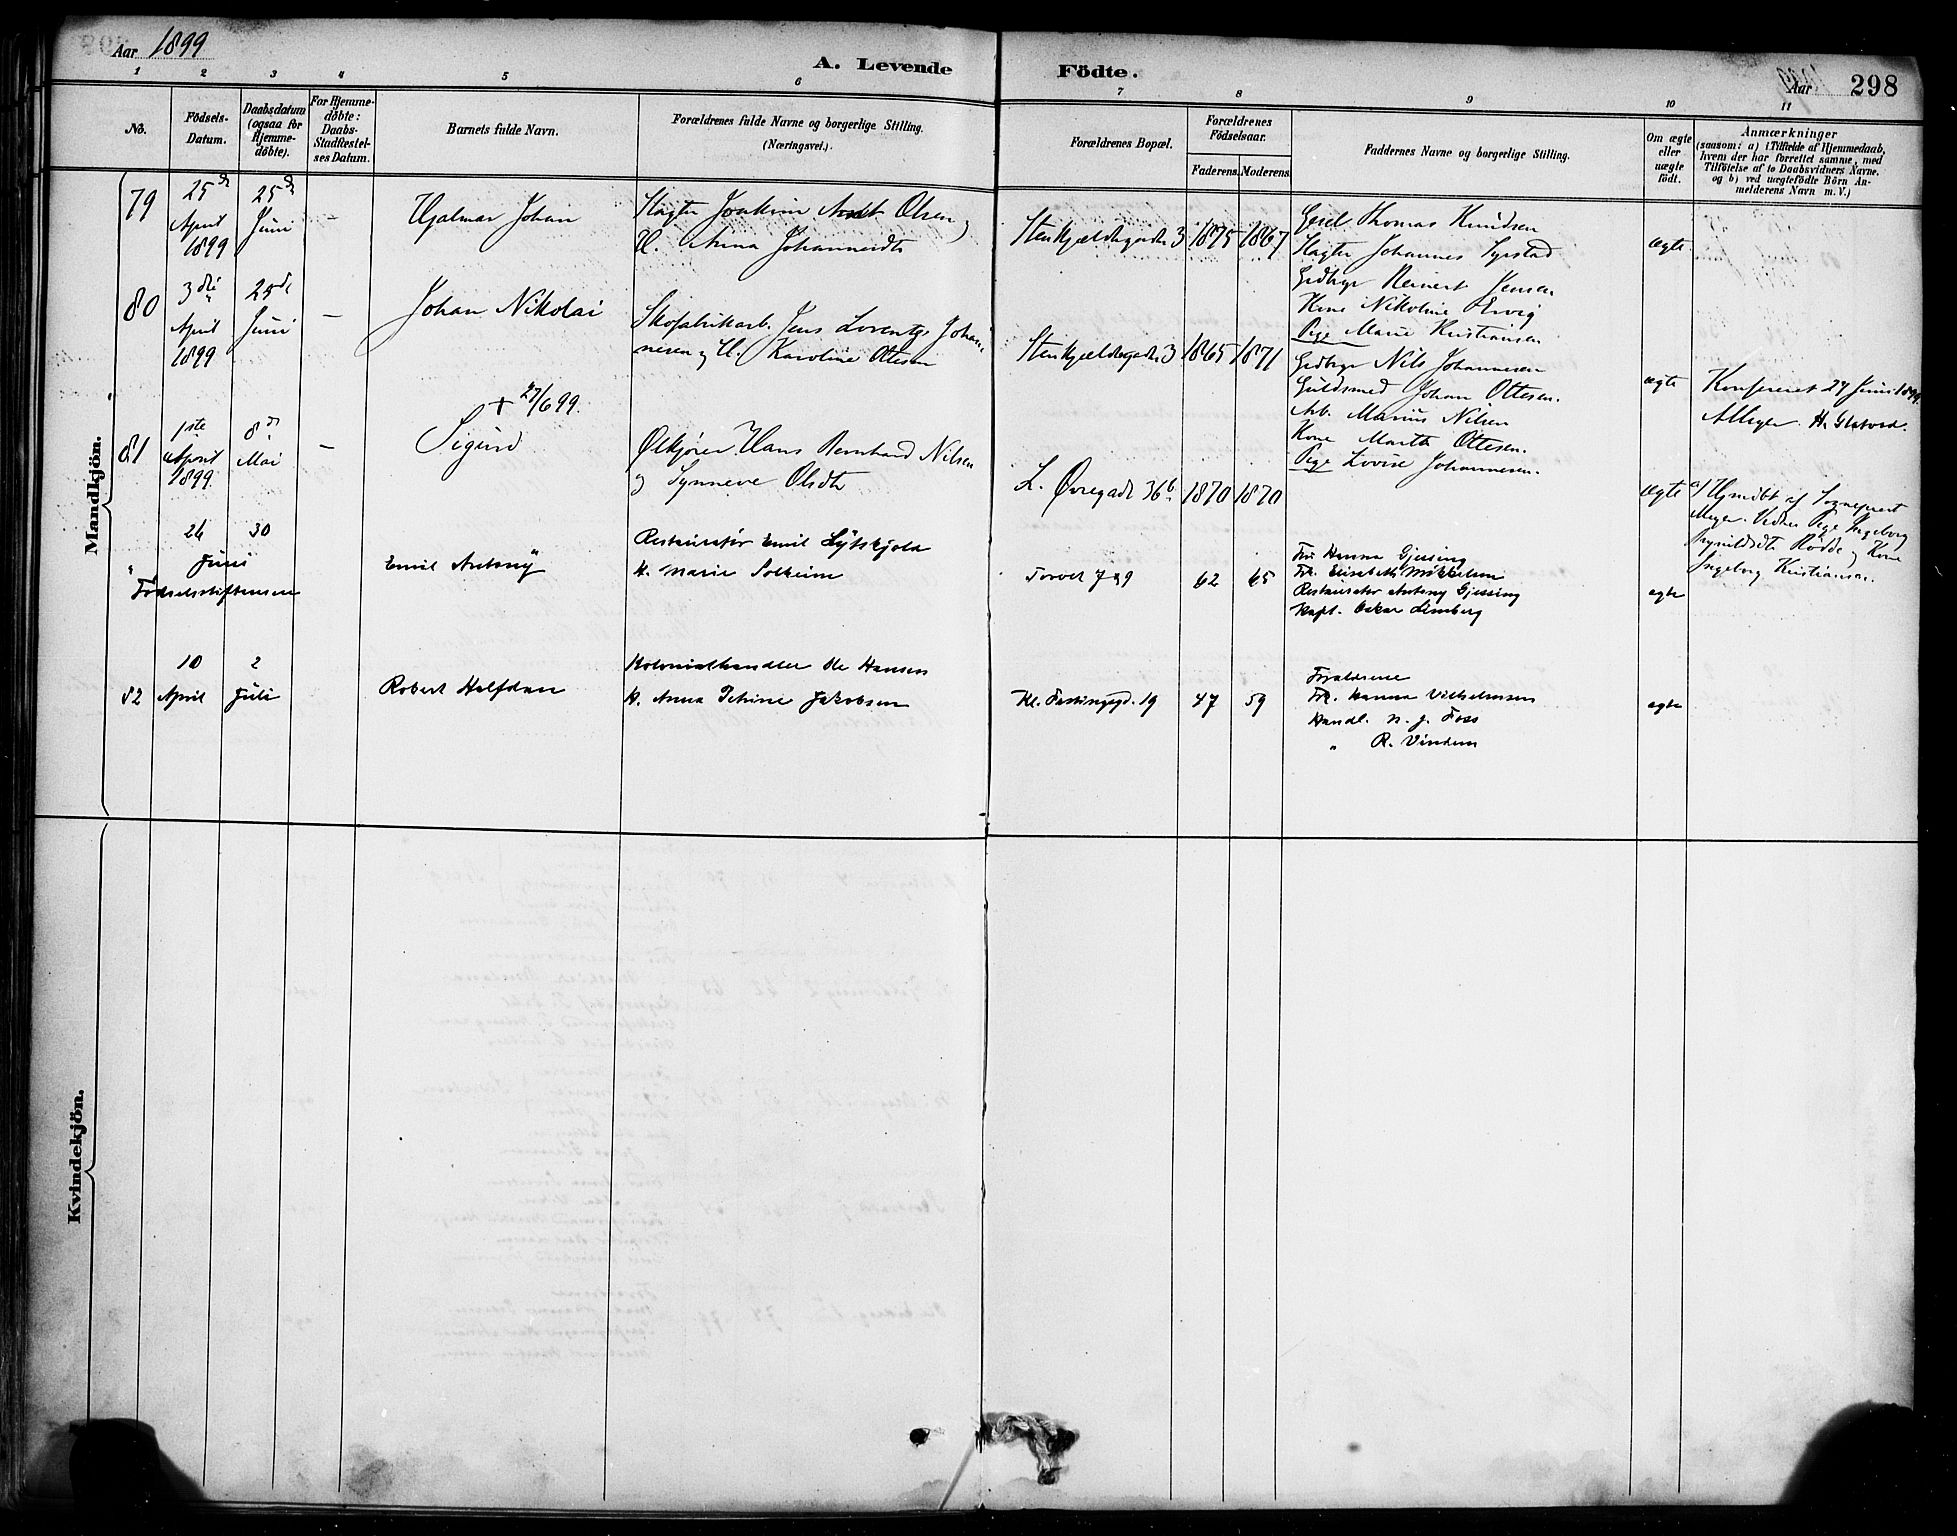 Aar 1899
A. Levende Födte.
Aar 298
1 2 3 4 5 6 7 8 9 10 11
No.
Födsels-
Datum.
Daabsdatum
(ogsaa for
Hjemme-
döbte).
For Hjemme-
döbte:
Daabs-
Stadfæstel-
ses Datum.
Barnets fulde Navn.
Forældrenes fulde Navne og borgerlige Stilling.
(Næringsvei.)
Forældrenes Bopæl.
Forældrenes
Födselsaar.
Faderens. Moderens.
Faddernes Navne og borgerlige Stilling.
Om ægte
eller
uægte
födt.
Anmærkninger
(saasom: a) i Tilfælde af Hjemmedaab,
hvem der har forrettet samme, med
Tilföielse af to Daabsvidners Navne,
og b) ved uægtefödte Börn An-
melderens Navn m. V.)
Mandkjön.
79
25de
April
1899
25de
Juni
–
Hjalmar Johan
Slagter Joakim Olsen
H. Anna Johannesdtr
Stenkjældergaden 3
1875
1867
Thomas Knudsen
Slagter Johannes Syrstad
Reinert Jensen
Kone Nikoline
Pige Marie Kristiansen
ægte
80
3die
April
1899
25de
Juni
–
Johan Nikolai
Skofabrikarb. Jens Lorentz Johan-
nesen og H. Karoline Ottesen
Stenkjældergaden 3
1865
1871
Nils Johannesen
Guldsmed Johan Ottesen.
Arb. Marius Nilsen
Kone Martha Ottesen.
Pige Lovise Johannesen.
ægte
Konfereret 27 Juni 1899.
81
1ste
April
1899.
8de
Mai
–
+ 27/6 99.
Sigurd
Ølkjører Hans Bernhard Nilsen
og Synneve Olsdtr
L. Øvregade 36b
1870
1870
ægte
a) Hjmdøbt af Sogneprest
Meyer. Vidner Pige Ingeborg
Rødde og Kone
Ingeborg Kristiansen.
"
26
30
Juni
Fødselsstiftelsen
Emil Antony
Restauratør Emil Lytskjold
H. Marie Solheim
Torvet 7 & 9
62
65
Fru Hanna Gjessing
Frk. Elisabeth Mikkelsen
Restauratør Antony Gjessing
Kapt. Oskar Limberg
egte
82
10
April
2
Juli
Robert Halfdan
Kolonialhandler Ole Hansen
H. Anna Petrine Jakobsen
Kl. Fastingsgd. 19
47
59
Forældrene
Frk. Hanna Vilhelmsen
Handl. N. J. Foss
" R. Vindum
egte
Kvindekjön.